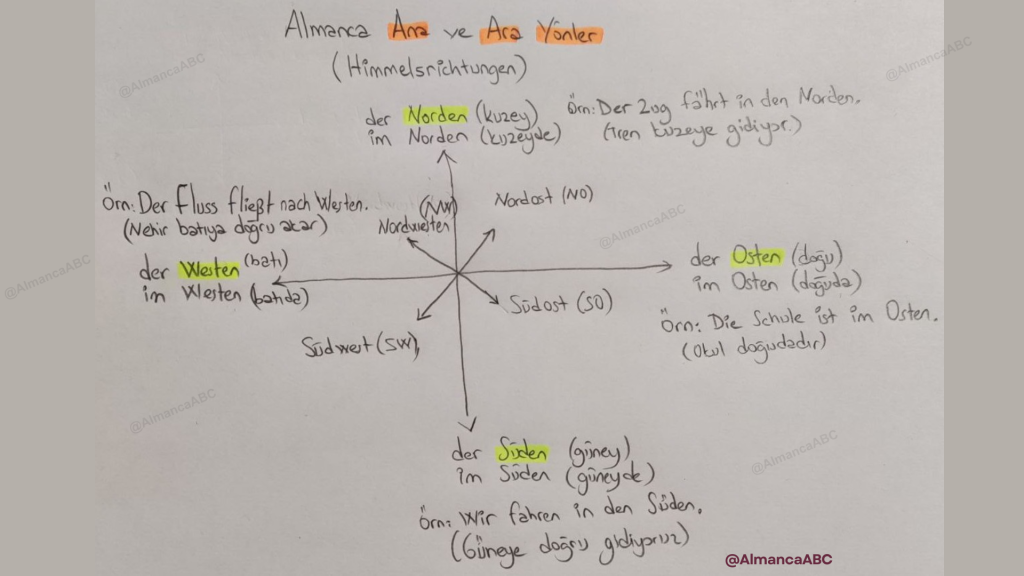 Almanca Ana ve Ara Yönler
(Himmelsrichtungen)
der Norden (kuzey)
im Norden (kuzeyde)
Örn: Der Zug fährt in den Norden.
(Tren kuzeye gidiyor.)
Örn: Der Fluss fließt nach Westen.
(Nehir batıya doğru akar)
(NW)
Nordwesten
Nordost (NO)
der Westen (batı)
im Westen (batıda)
der Osten (doğu)
im Osten (doğuda)
Örn: Die Schule ist im Osten.
(Okul doğudadır)
Südwest (SW)
Südost (SO)
der Süden (güney)
im Süden (güneyde)
Örn: Wir fahren in den Süden.
(Güneye doğru gidiyoruz)
@AlmancaABC
@AlmancaABC
@AlmancaABC
@AlmancaABC
@AlmancaABC
@AlmancaABC
@AlmancaABC